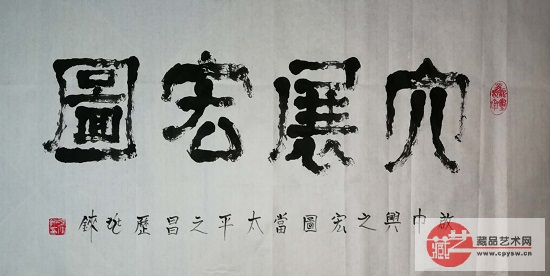 大展宏圖
啟中興之宏圖當太平之昌歷
藏艺
藏品艺术网
www.cpysw.cn